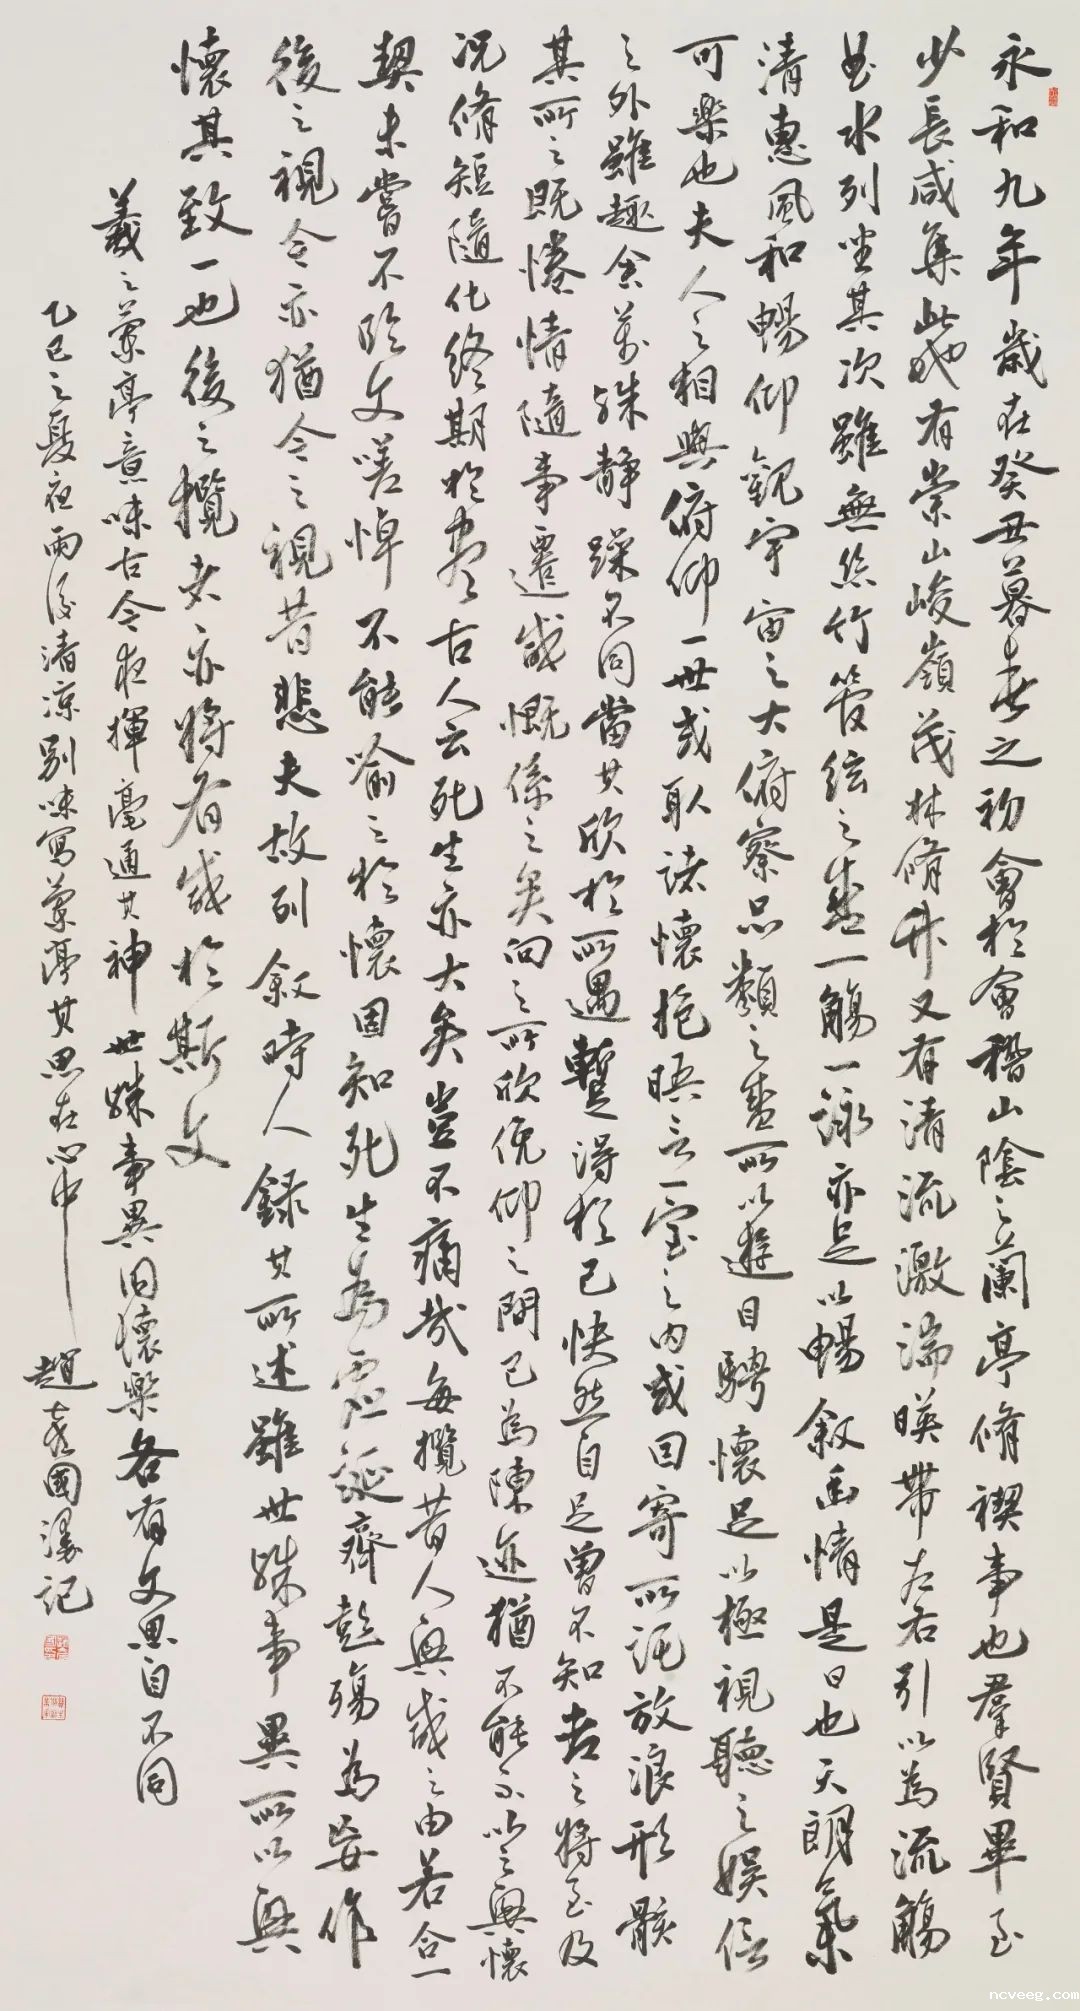 永和九年歲在癸丑暮春之初會於會稽山陰之蘭亭脩禊事也羣賢畢至
少長咸集此地有崇山峻嶺茂林脩竹又有清流激湍暎帶左右引以為流觴
曲水列坐其次雖無絲竹管絃之盛一觴一詠亦足以暢叙幽情是日也天朗氣
清惠風和暢仰觀宇宙之大俯察品類之盛所以遊目騁懷足以極視聽之娛信
可樂也夫人之相與俯仰一世或取諸懷抱晤言一室之內或因寄所託放浪形骸
之外雖趣舍萬殊静躁不同當其欣於所遇暫得於己快然自足曾不知老之將至及
其所之既惓情隨事遷感慨係之矣向之所欣俛仰之間已為陳迹猶不能不以之興懷
况脩短隨化終期於盡古人云死生亦大矣豈不痛哉每攬昔人興感之由若合一
契未嘗不臨文嗟悼不能喻之於懷固知死生為虛誕齊彭殤為妄作
後之視今亦猶今之視昔悲夫故列叙時人録其所述雖世殊事異所以興
懷其致一也後之攬者亦將有感於斯文
羲之蘭亭意味古今夜揮毫通其神世殊事異同懷樂各有文思自不同
乙巳之夏夜雨後清凉别味寫蘭亭其思在心中
趙喜國漫記
ncveeg.com